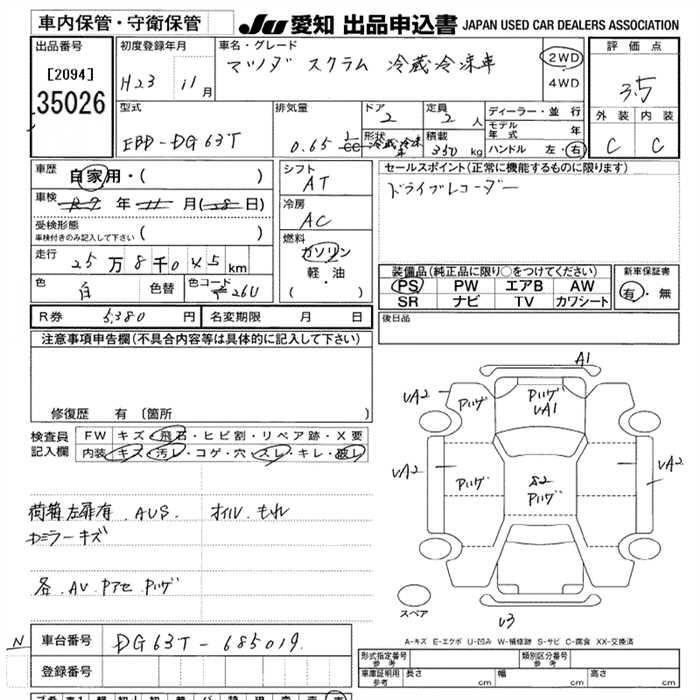 車内保管・守衛保管
JU 愛知 出品申込書 JAPAN USED CAR DEALERS ASSOCIATION
出品番号
[2094]
35026
初度登録年月
H23 11月
車名・グレード
マツダ スクラム 冷蔵冷凍車
2WD
4WD
評価点
3.5
外装 内装
C C
型式
EBD-DG63T
排気量
0.65 L cc
ドア
2
形状
冷蔵冷凍車
定員
2人
積載
350kg
ディーラー・並行
モデル年式 年
ハンドル 左・右
車歴
自家用・( )
車検
R9年11月(28日)
受検形態
車検付きのみ記入して下さい ( )
走行
25万8千045km
色
白
色替
色コード
26U
シフト
AT
冷房
AC
燃料
ガソリン
軽・油
( ・ )
セールスポイント(正常に機能するものに限ります)
ドライブレコーダー
装備品(純正品に限り○をつけてください)
PS PW エアB AW
SR ナビ TV カワシート
新車保証書
有・無
R券 5,380円
名変期限 月 日
後日品
注意事項申告欄(不具合内容等は具体的に記入して下さい)
修復歴 有 [箇所 ]
検査員
記入欄
FW キズ・飛石・ヒビ割・リペア跡・X要
内装 キズ・汚レ・コゲ・穴・スレ・キレ・破レ
荷箱左扉有 . AUS. オイル.もれ
ミラーキズ
各.AV.Pアセ.Pハゲ
A1
UA2 Pハゲ Pハゲ
UA1
UA2 UA2
Pハゲ S2
Pハゲ
スペア
U3
A-キズ E-エクボ U-凹み W-補修跡 S-サビ C-腐食 XX-交換済
N 車台番号 DG63T-685019.
登録番号
形式指定番号
参考
類別区分番号
参考
車庫証明用
参考
長さ cm 幅 cm 高さ cm